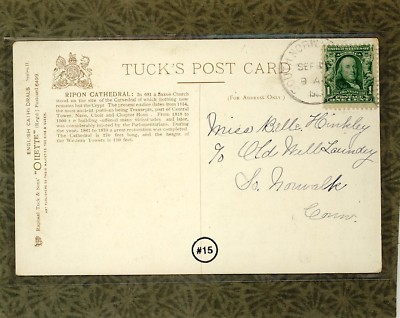 TUCK'S POST CARD
(FOR ADDRESS ONLY)
RIPON CATHEDRAL: In 661 a Saxon Church
stood on the site of the Cathedral of which nothing now
remains but the Crypt. The present edifice dates from 1154,
the most ancient portion being Transepts, part of Central
Tower, Nave, Choir and Chapter House. From
a building suffered many vicissitudes, and later,
was considerably injured by the Parliamentarians. During
the years, 1862 to 1870 a great restoration was completed.
The Cathedral is 270 feet long, and the height of
the Western Towers is 110 feet.
ENGLISH CATHEDRALS
Raphael Tuck & Sons' "OILETTE" (Regd.) Postcard
NORWALK
SEP
9 A
Miss Belle Hinkley
To Old Well Laundry
So. Norwalk
Conn.
#15